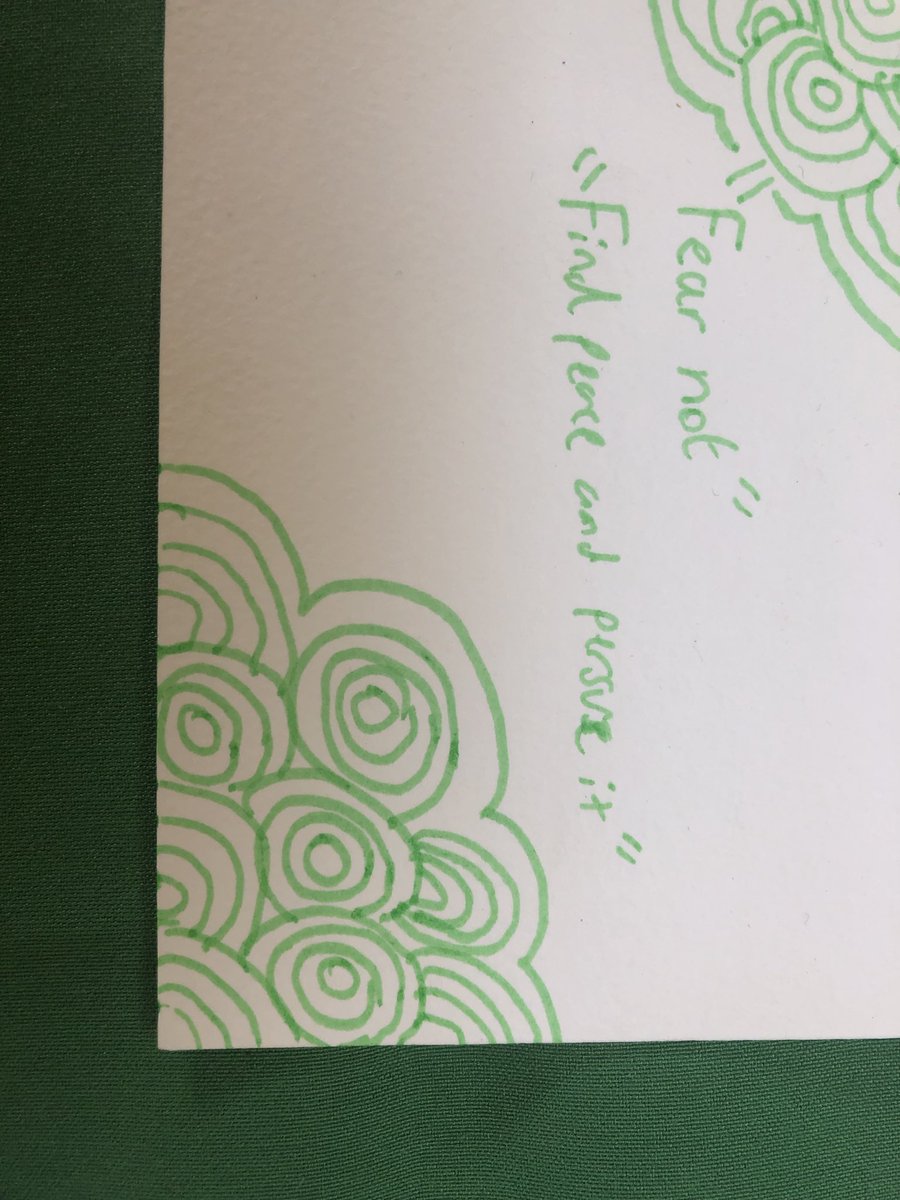 "Fear not"
"Find peace and pursue it"